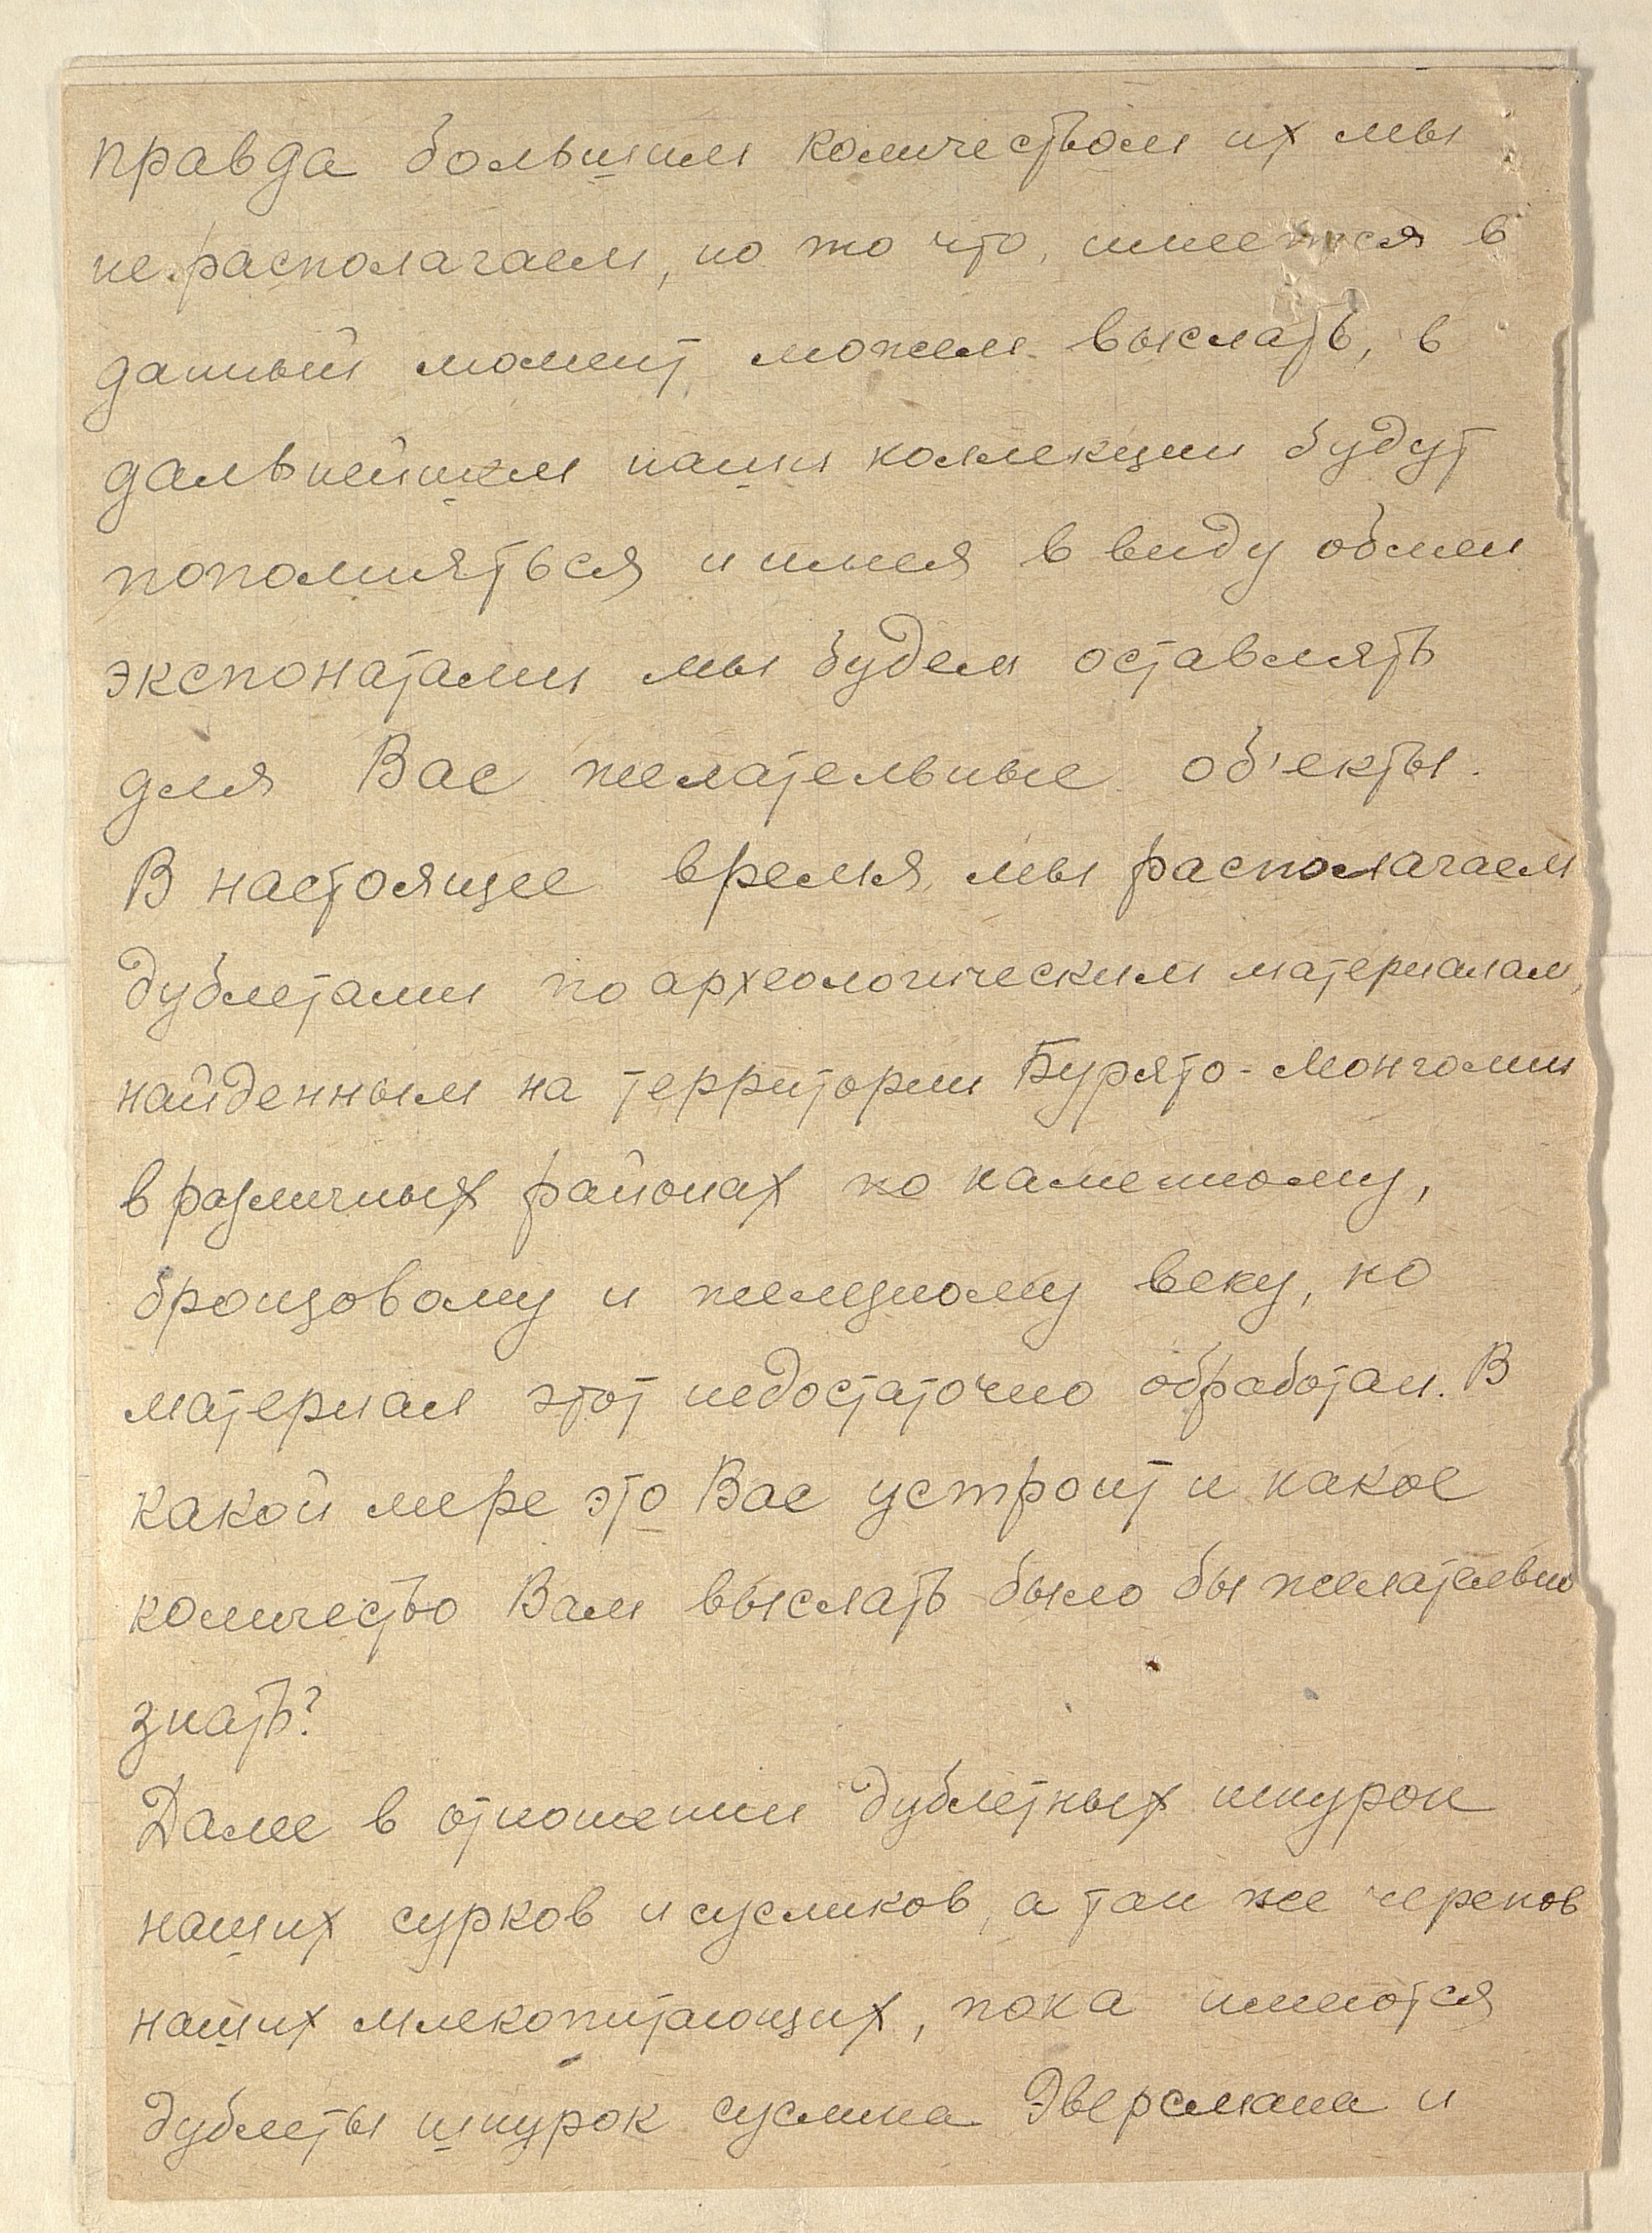 правда большим количеством их мы
не располагаем, но то что, имеется в
данный момент, можем выслать, в
дальнейшем наши коллекции будут
пополняться и имея в виду обмен
экспонатами мы будем оставлять
для Вас желательные об'екты.
В настоящее время, мы располагаем
дублетами по археологическим материалам,
найденным на территории Бурято-Монголии
в различных районах по каменному,
бронзовому и железному веку, но
материал этот недостаточно обработан. В
какой мере это Вас устроит и какое
количество Вам выслать было бы желательно
знать?
Далее в отношении дублетных шкурок
наших сурков и сусликов, а так же черепов
наших млекопитающих, пока имеются
дублеты шкурок суслика Эверсмана и